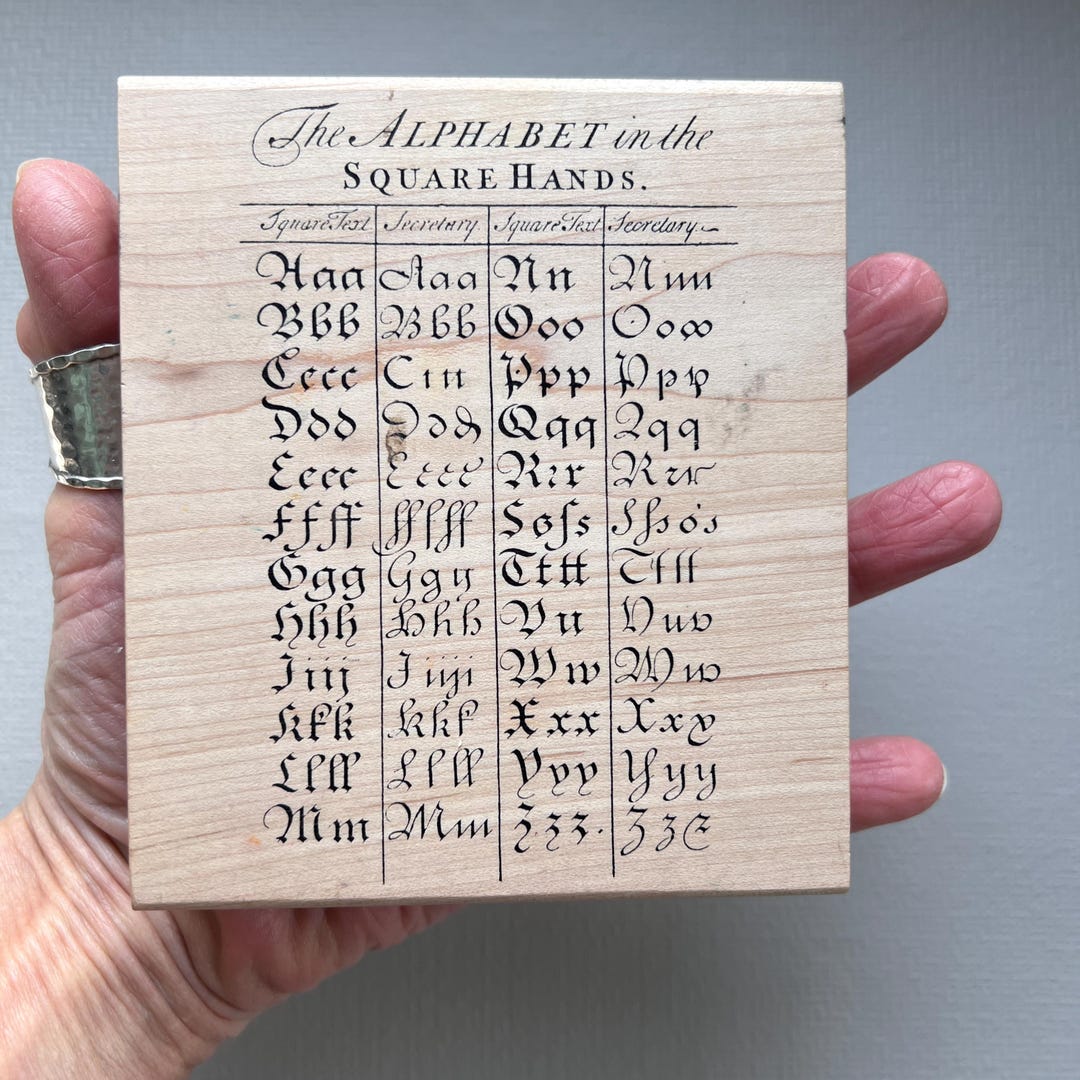 The ALPHABET in the
SQUARE HANDS.
Square Text Secretary Square Text Secretary
Aaa Aaa Nn Nnn
Bbb Bbb Ooo Ooo
Cccc Cccc Ppp Ppp
Ddd Ddd Qqq Qqq
Eeee Eeee Rrr Rrr
Ffff ffffff Ssſs Sſsss
Ggg Ggg Tttt Tttt
Hhh Hhh Vu Vuv
Jiij Jiiji Ww Ww
Kkk Kkk Xxx Xxx
Llll Llll Yyy Yyy
Mm Mm Zzz. Zzz